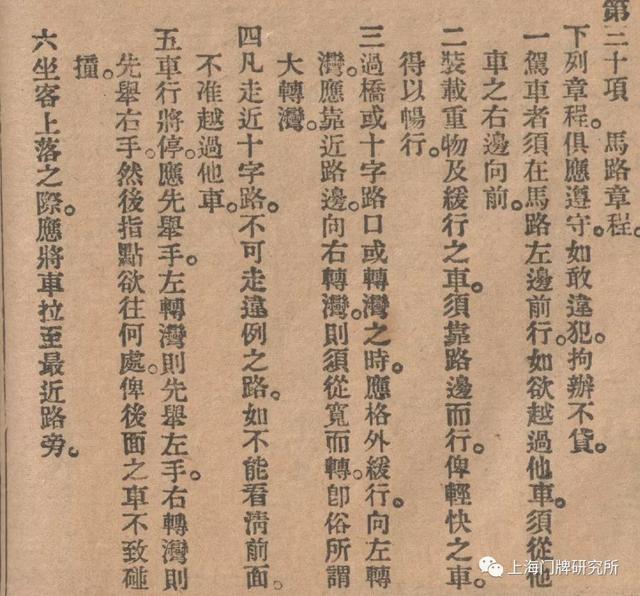 第三十項　馬路章程。
下列章程。俱應遵守。如敢違犯。拘辦不貸。
一駕車者須在馬路左邊前行。如欲越過他車。須從他
車之右邊向前。
二裝載重物及緩行之車。須靠路邊而行。俾輕快之車。
得以暢行。
三過橋或十字路口或轉灣之時。應格外緩行。向左轉
灣。應靠近路邊。向右轉灣。則須從寬而轉。卽俗所謂
大轉灣。
四凡走近十字路。不可走違例之路。如不能看淸前面。
不准越過他車。
五車行將停。應先舉手。左轉灣則先舉左手。右轉灣則
先舉右手。然後指點欲往何處。俾後面之車不致碰
撞。
六坐客上落之際。應將車拉至最近路旁。
上海门牌研究所